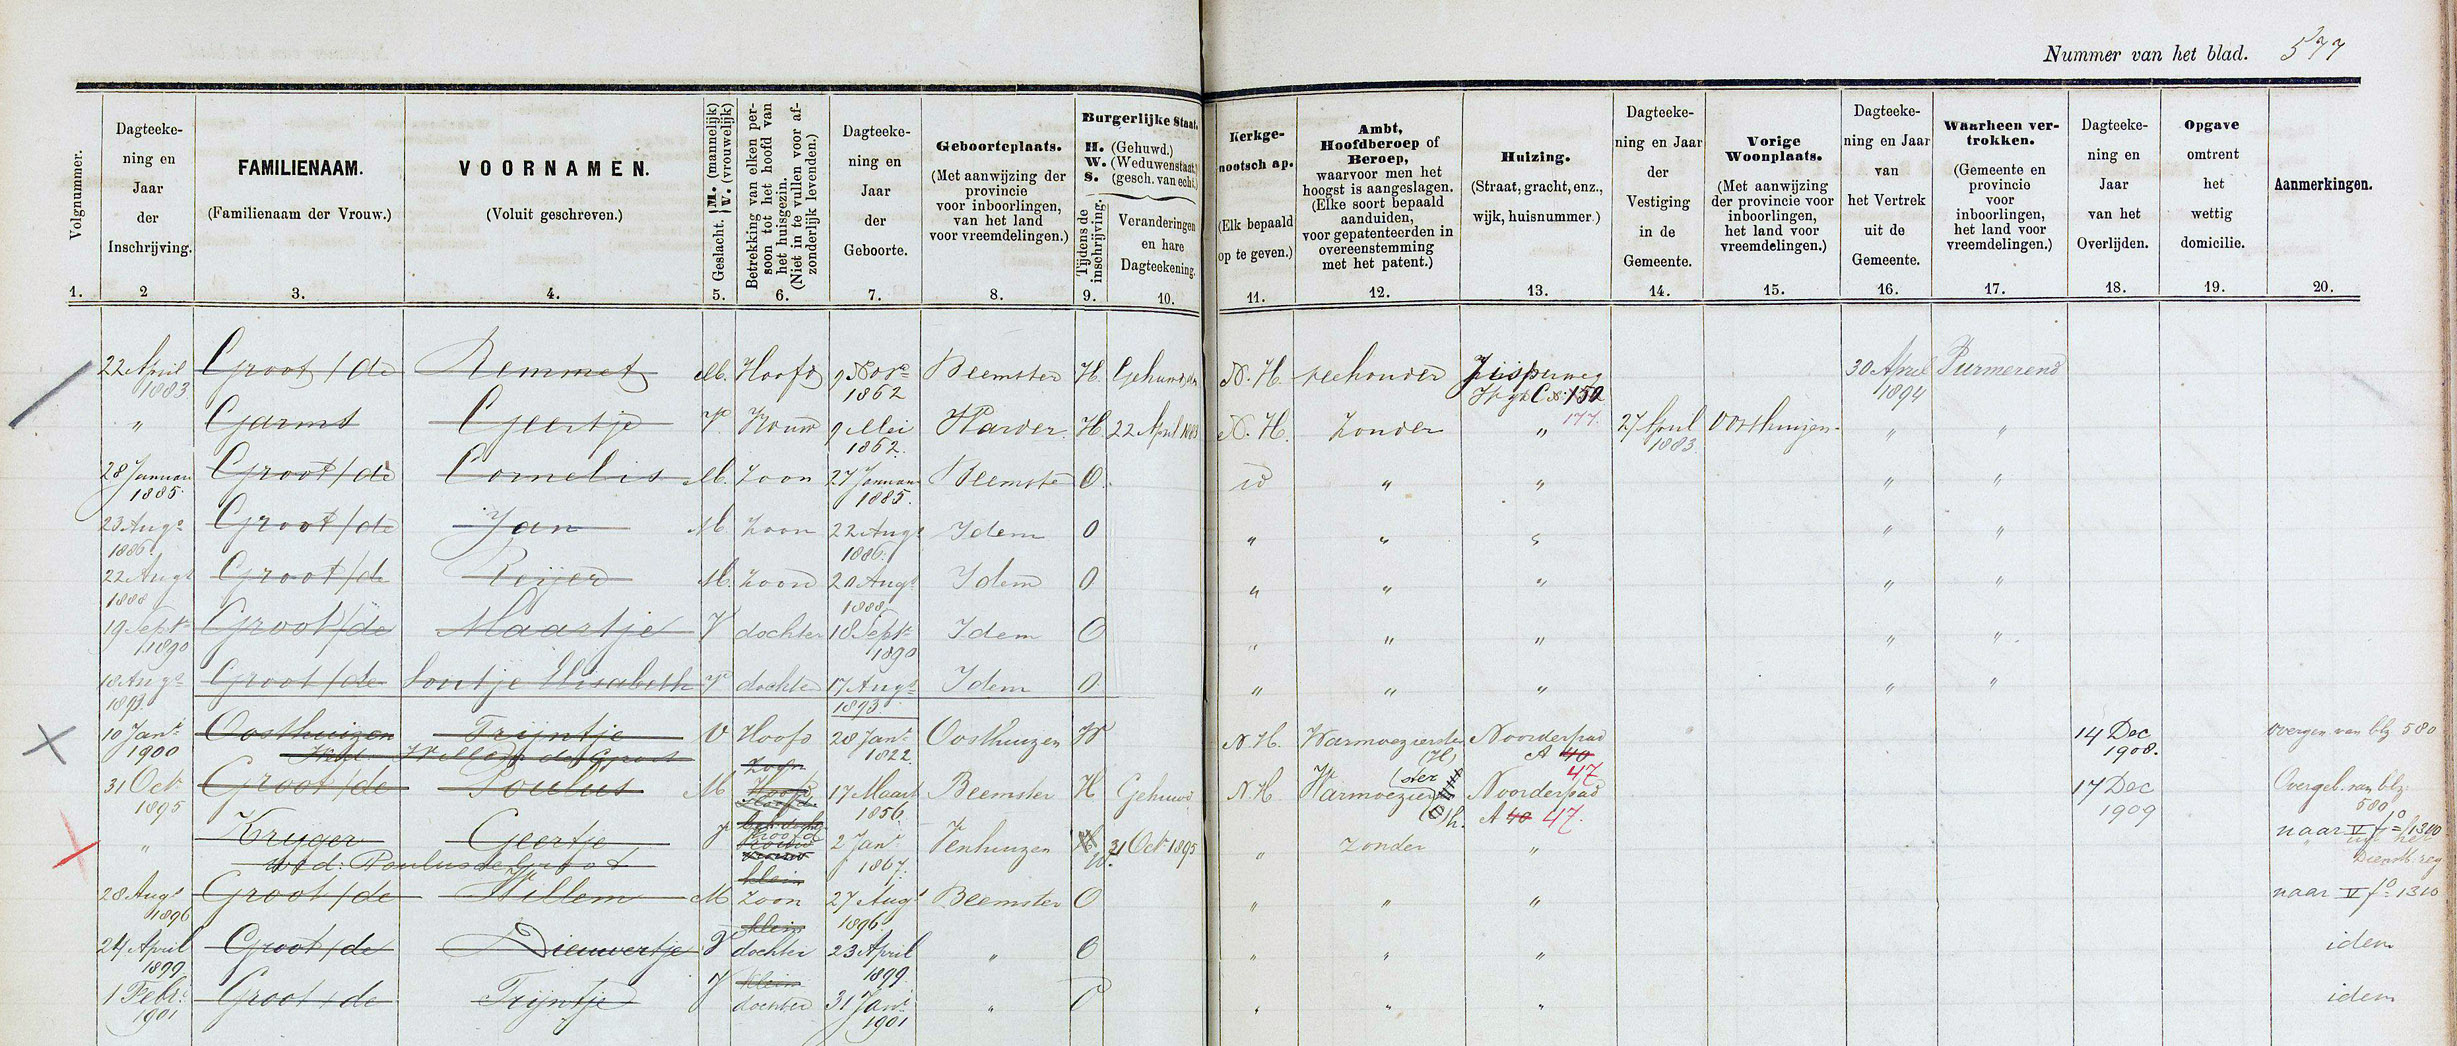 Nummer van het blad. 577
Volgnummer.
Dagteeke-
ning en
Jaar
der
Inschrijving.
FAMILIENAAM.
(Familienaam der Vrouw.)
VOORNAMEN.
(Voluit geschreven.)
Geslacht. { M. (mannelijk) W. (vrouwelijk)
Betrekking van elken per-
soon tot het hoofd van
het huisgezin.
(Niet in te vullen voor af-
zonderlijk levenden.)
Dagteeke-
ning en
Jaar
der
Geboorte.
Geboorteplaats.
(Met aanwijzing der
provincie
voor inboorlingen,
van het land
voor vreemdelingen.)
Burgerlijke Staat.
H. (Gehuwd.)
W. (Weduwenstaat.)
S. (gesch. van echt.)
Tijdens de
inschrijving.
Veranderingen
en hare
Dagteekening.
Kerkge-
nootschap.
(Elk bepaald
op te geven.)
Ambt,
Hoofdberoep of
Beroep,
waarvoor men het
hoogst is aangeslagen.
(Elke soort bepaald
aanduiden,
voor gepatenteerden in
overeenstemming
met het patent.)
Huizing.
(Straat, gracht, enz.,
wijk, huisnummer.)
Dagteeke-
ning en Jaar
der
Vestiging
in de
Gemeente.
Vorige
Woonplaats.
(Met aanwijzing
der provincie voor
inboorlingen,
het land voor
vreemdelingen.)
Dagteeke-
ning en Jaar
van
het Vertrek
uit de
Gemeente.
Waarheen ver-
trokken.
(Gemeente en
provincie
voor
inboorlingen,
het land voor
vreemdelingen.)
Dagteeke-
ning en
Jaar
van het
Overlijden.
Opgave
omtrent
het
wettig
domicilie.
Aanmerkingen.
1. 2 3. 4. 5. 6. 7. 8. 9. 10. 11. 12. 13. 14. 15. 16. 17. 18. 19. 20.
22 April Groot / de Remmet M. Hoofd 9 Nov. Beemster H. Gehuwd den N. H. veehouder Jisperweg 30 April Purmerend
1883 1862 Wijk C No 150 1894
" Garms Geertje V Vrouw 9 Mei Warder H 22 April 1883 N. H. Zonder " 177. 27 April Oosthuizen " "
1862. 1883.
28 Januari Groot / de Cornelis M. Zoon 27 Januari Beemster O. id " " " "
1885. 1885.
23 Augs Groot / de Jan M. Zoon 22 Augs Idem O " " " " "
1886. 1886.
22 Augs Groot / de Reijer M. Zoon 20 Augs Idem O " " " " "
1888 1888
19 Sept. Groot / de Maartje V dochter 18 Sept. Idem O " " " " "
1890 1890
18 Augs Groot / de Loutje Elisabeth V dochter 17 Augs Idem O " " " " "
1893. 1893.
10 Jan. Oosthuizen Trijntje V Hoofd 28 Jan. Oosthuizen W N. H. Warmoezierster Noorderpad 14 Dec overgen van blz. 580
1900 Wed. Willem de Groot 1822. (H) A 40 1908.
Zoon 47
31 Oct. Groot / de Poulus M Hoofd 17 Maart Beemster H Gehuwd N. H. Warmoezier Noorderpad 17 Dec Overgeb. van blz.
1895 1856. (H) h. A 40 47. 1909 580
" Kryger Geertje V Hoofd 2 Jan. Venhuizen H 31 Oct. 1895 " Zonder " naar V fo 1310
wed: Paulus de Groot vrouw 1867. W. in het Dienstb. reg
klein
28 Augs Groot / de Willem M Zoon 27 Augs Beemster O " " " naar V fo 1310
1896 1896.
klein
24 April Groot / de Dieuwertje V dochter 23 April " O " " " idem
1899 1899.
klein
1 Febr. Groot / de Trijntje V dochter 31 Jan. " O " " " idem
1901 1901